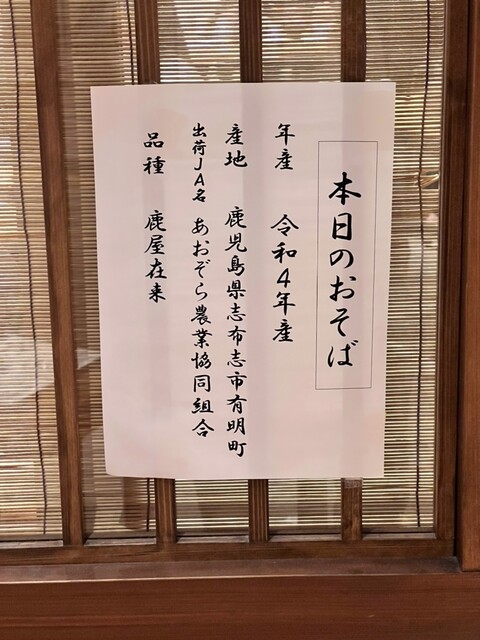 本日のおそば
年産 令和4年産
産地 鹿児島県志布志市有明町
出荷JA名 あおぞら農業協同組合
品種 鹿屋在来